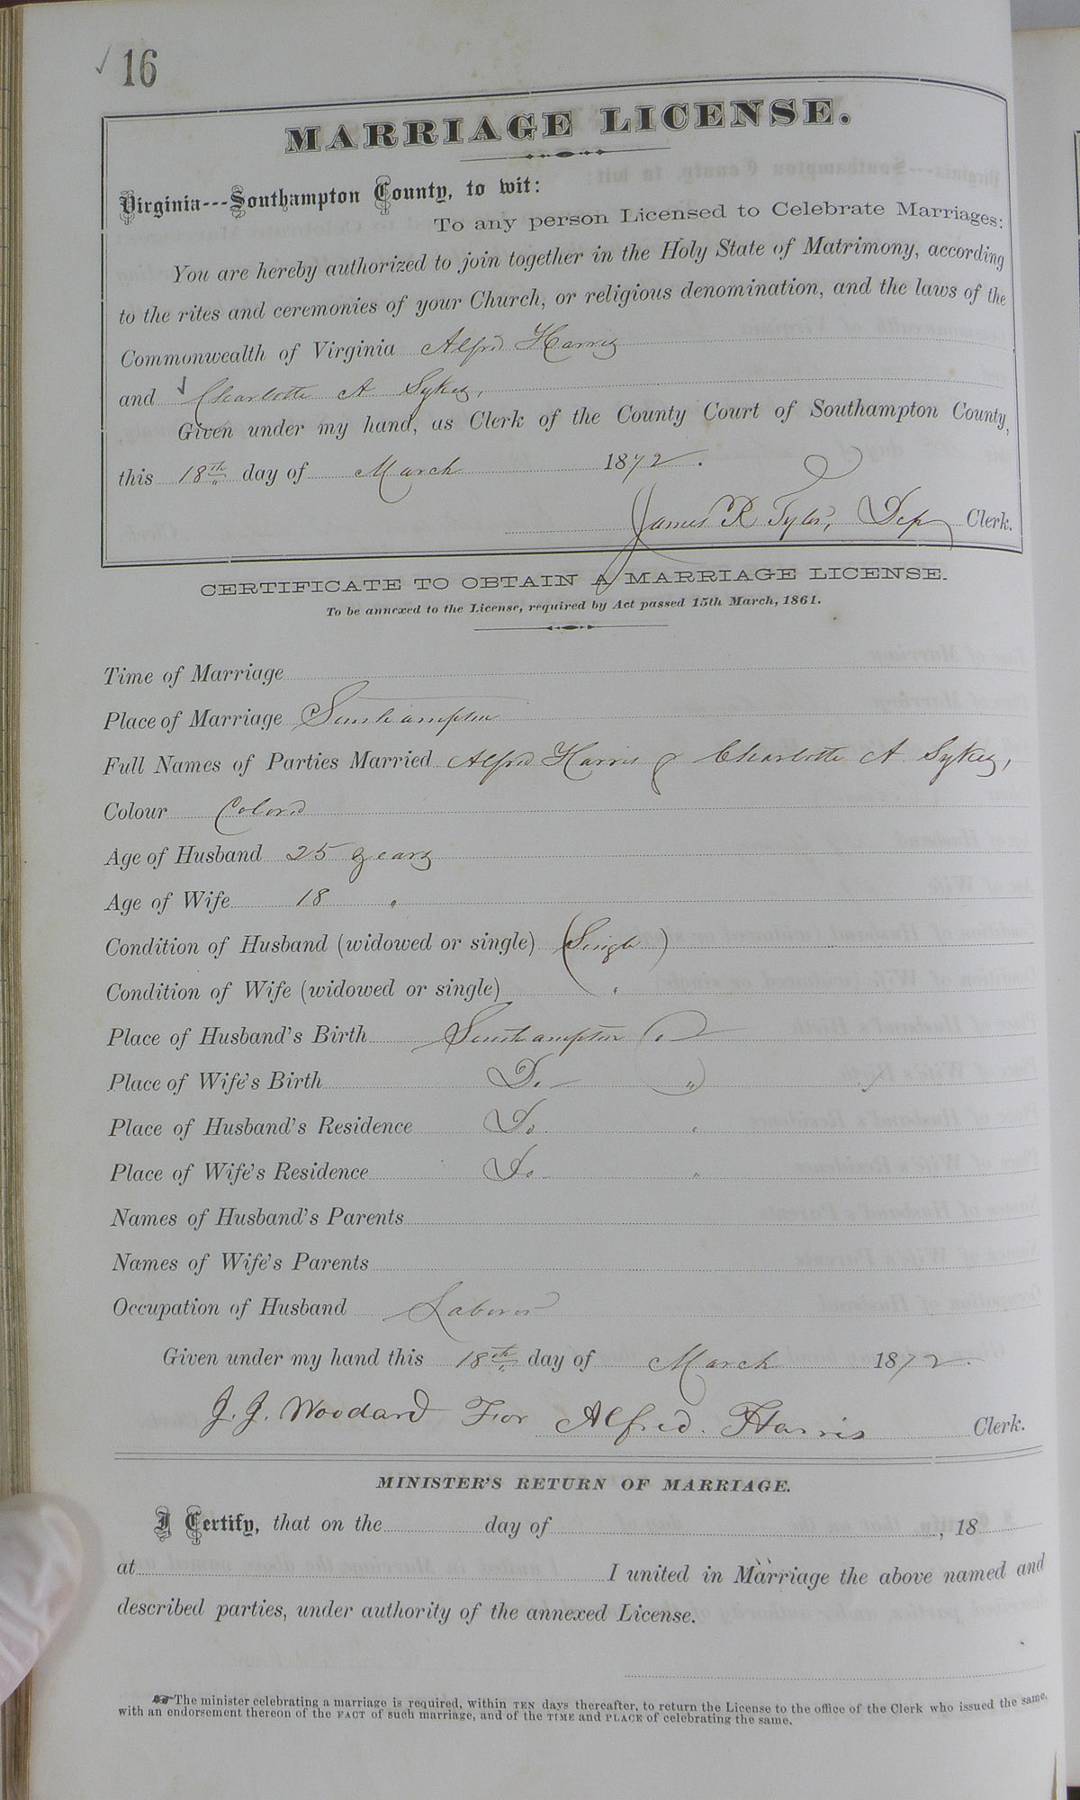 ✓ 16
MARRIAGE LICENSE.
Virginia---Southampton County, to wit:
To any person Licensed to Celebrate Marriages:
You are hereby authorized to join together in the Holy State of Matrimony, according
to the rites and ceremonies of your Church, or religious denomination, and the laws of the
Commonwealth of Virginia Alfrd Harris
and ✓ Charlotte A Sykes,
Given under my hand, as Clerk of the County Court of Southampton County,
this 18th day of March 1872.
James R Tyler, Dep Clerk.
CERTIFICATE TO OBTAIN A MARRIAGE LICENSE.
To be annexed to the License, required by Act passed 15th March, 1861.
Time of Marriage
Place of Marriage Southampton
Full Names of Parties Married Alfrd Harris & Charlotte A Sykes,
Colour Colord
Age of Husband 25 years
Age of Wife 18 "
Condition of Husband (widowed or single) (Single)
Condition of Wife (widowed or single) "
Place of Husband's Birth Southampton
Place of Wife's Birth Do "
Place of Husband's Residence Do "
Place of Wife's Residence Do "
Names of Husband's Parents
Names of Wife's Parents
Occupation of Husband Laborer
Given under my hand this 18th day of March 1872.
J. J. Woodard For Alfred. Harris Clerk.
MINISTER'S RETURN OF MARRIAGE.
I Certify, that on the day of , 18
at I united in Marriage the above named and
described parties, under authority of the annexed License.
☞The minister celebrating a marriage is required, within TEN days thereafter, to return the License to the office of the Clerk who issued the same,
with an endorsement thereon of the FACT of such marriage, and of the TIME and PLACE of celebrating the same.